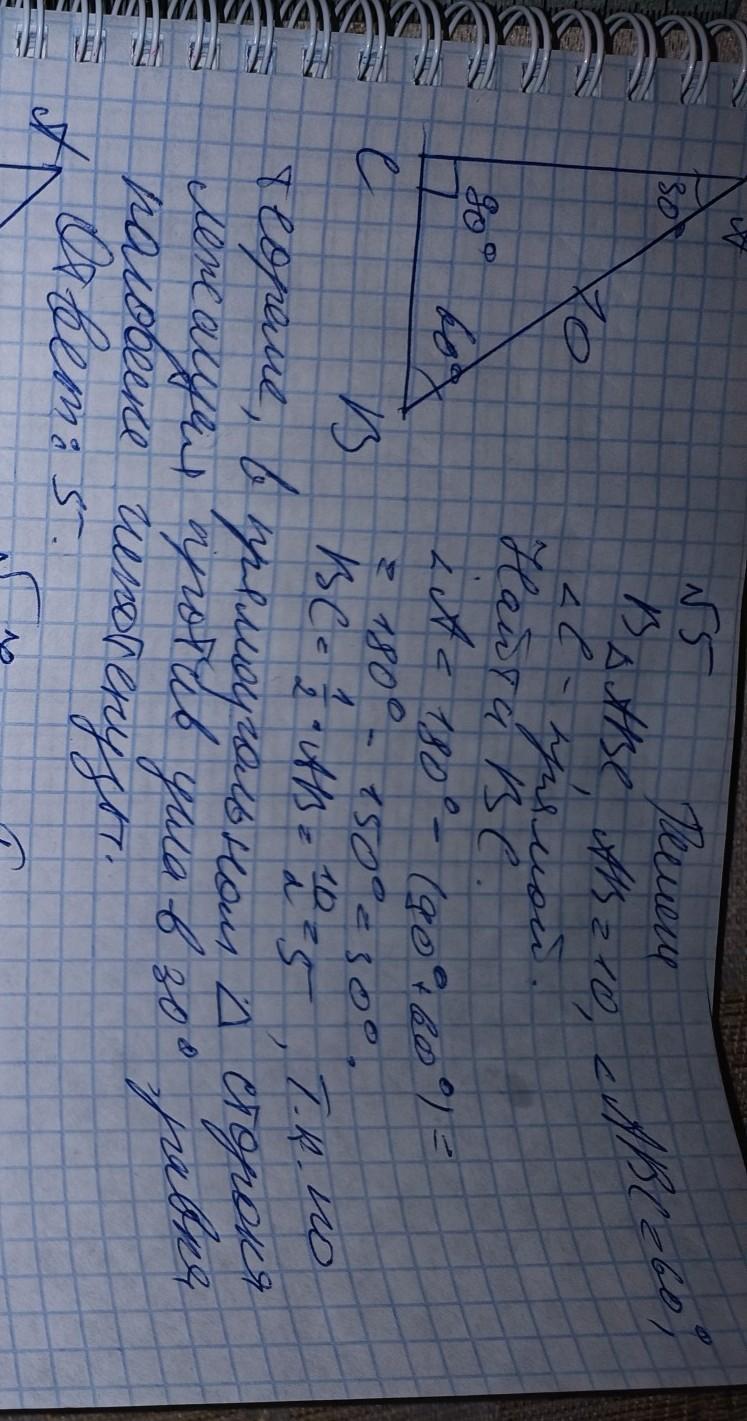 №5 Решение
В △ABC AB = 10, ∠ABC = 60°,
∠C - прямой.
Найти BC.
A
30°
10
90°
60°
C
B
∠A = 180° - (90° + 60°) =
= 180° - 150° = 30°.
BC = 1/2 · AB = 10/2 = 5, т.к. по
теореме, в прямоугольном △ сторона
лежащая против угла в 30° равна
половине гипотенузы.
Ответ: 5.
A